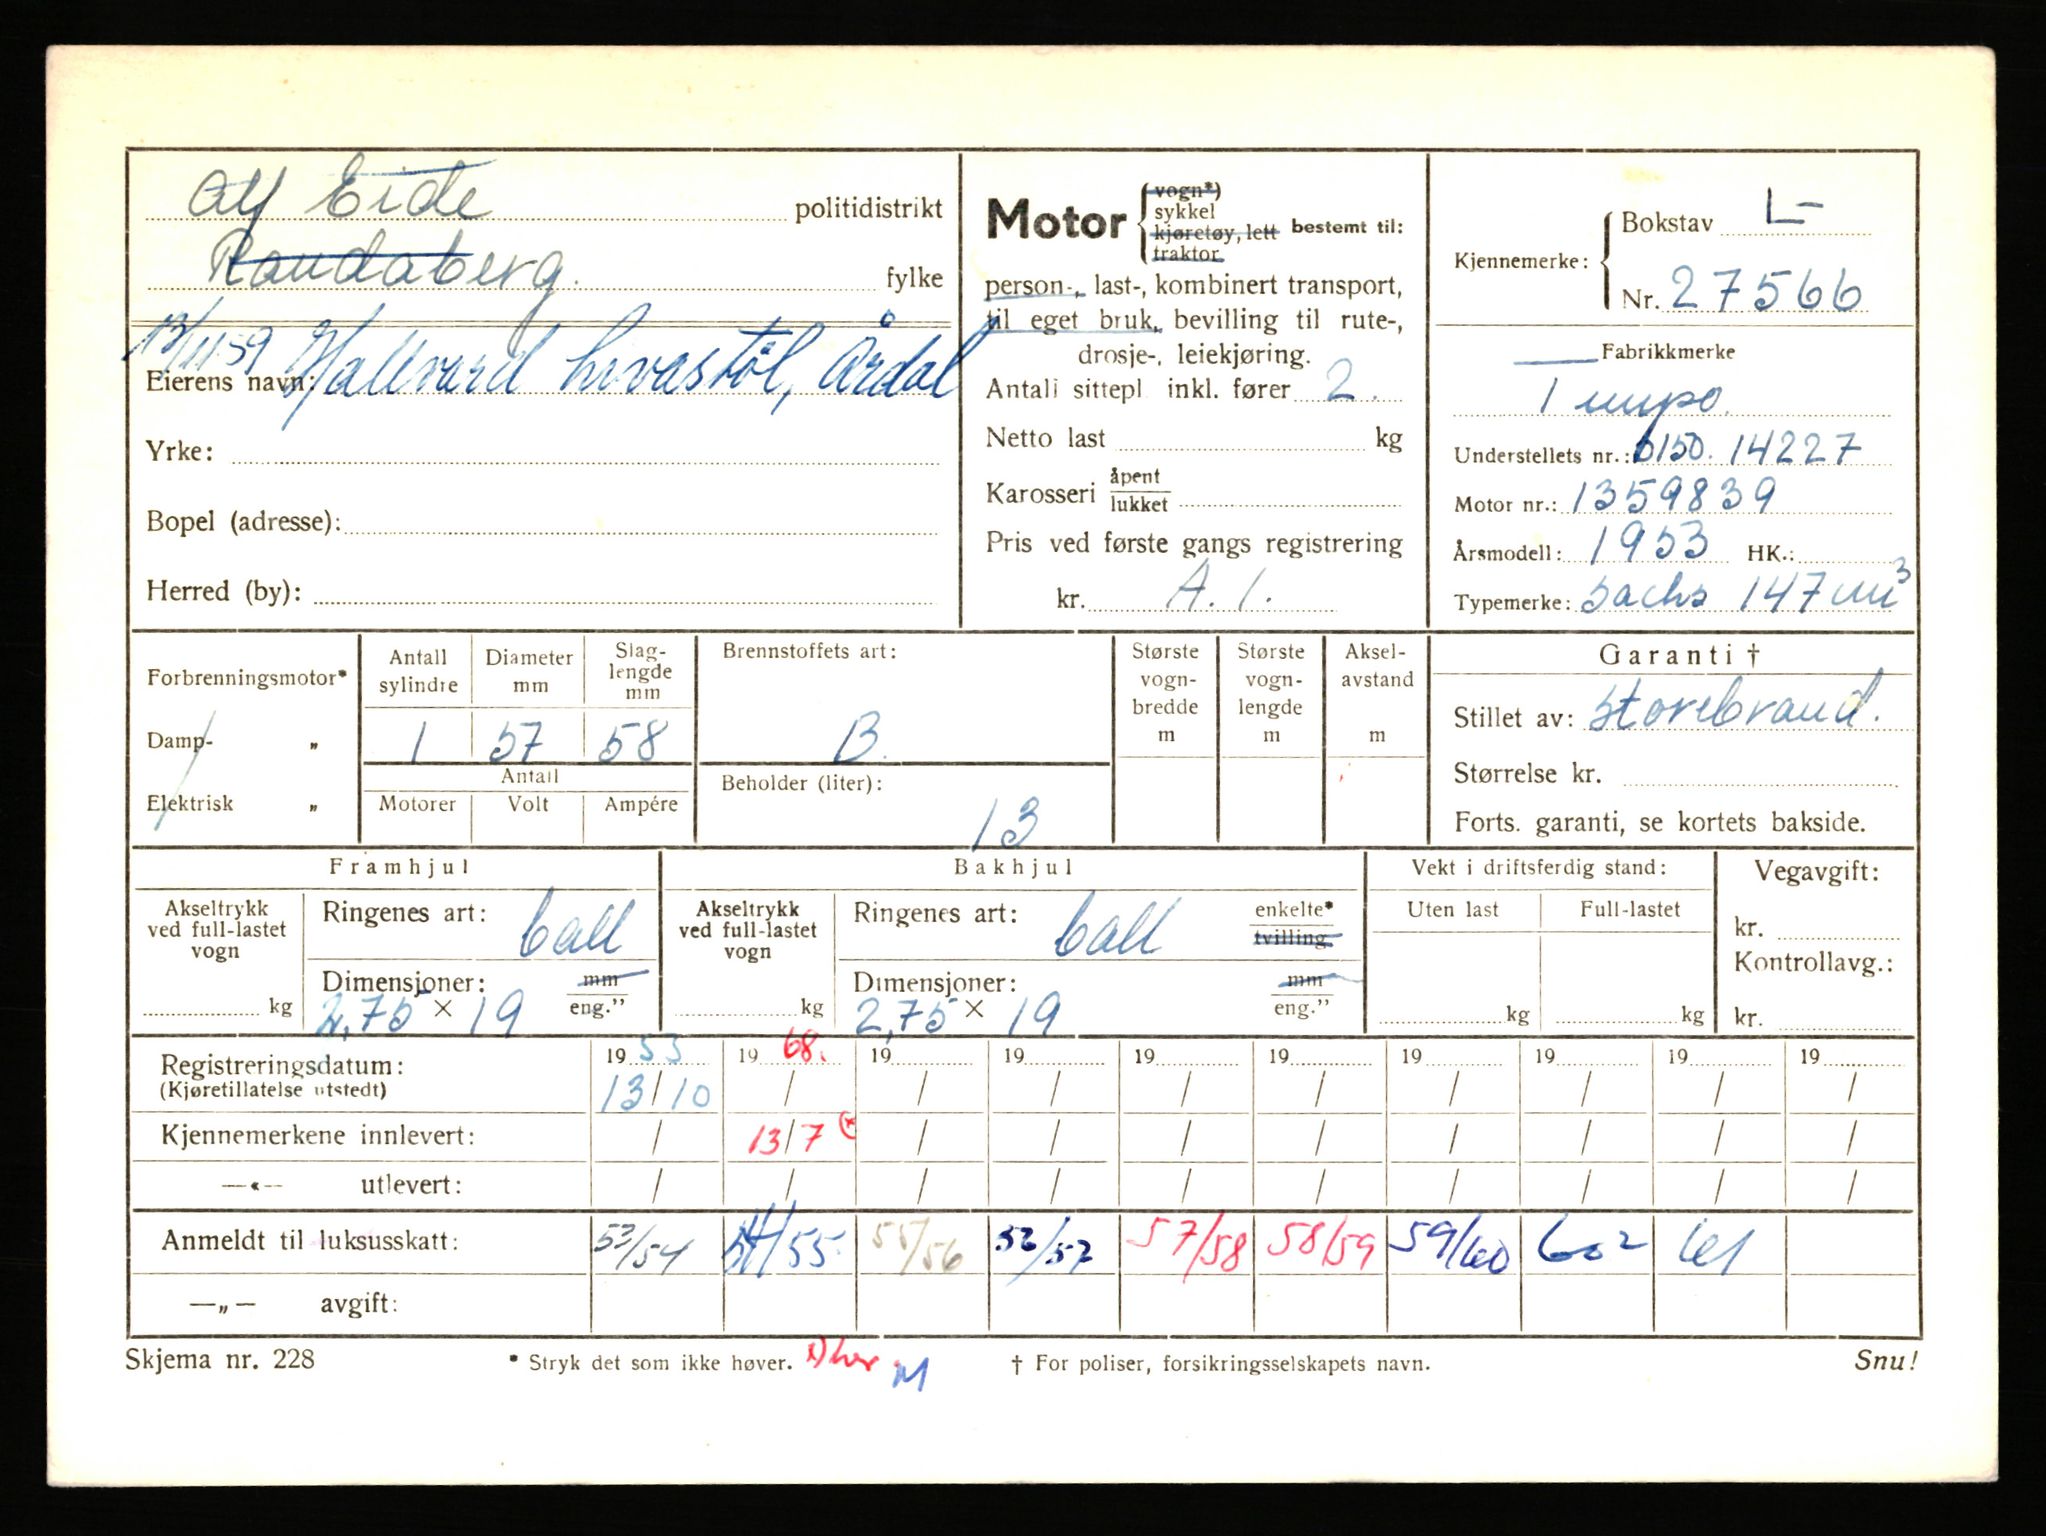 Alf Eide politidistrikt
Randaberg. fylke
13/11 59 Hallvard Livastøl, Årdal
Eierens navn:
Yrke:
Bopel (adresse):
Herred (by):
Motor vogn*) sykkel kjøretøy, lett traktor bestemt til:
person-, last-, kombinert transport,
til eget bruk, bevilling til rute-,
drosje-, leiekjøring.
Antall sittepl. inkl. fører 2.
Netto last kg
Karosseri åpent lukket
Pris ved første gangs registrering
kr. A. 1.
Kjennemerke: Bokstav L-
Nr. 27566
Fabrikkmerke
Tempo
Understellets nr.: 6150. 14227
Motor nr.: 1359839
Årsmodell: 1953 HK.:
Typemerke: Sachs 147 cm³
Forbrenningsmotor*
Damp- „
Elektrisk „
Antall sylindre Diameter mm Slaglengde mm
1 57 58
Antall
Motorer Volt Ampére
Brennstoffets art:
B.
Beholder (liter):
13
Største vognbredde m
Største vognlengde m
Akselavstand m
Garanti †
Stillet av: Storebrand.
Størrelse kr.
Forts. garanti, se kortets bakside.
Framhjul
Akseltrykk ved full-lastet vogn kg
Ringenes art: ball
Dimensjoner: mm
2,75 × 19 eng."
Bakhjul
Akseltrykk ved full-lastet vogn kg
Ringenes art: ball enkelte* tvilling
Dimensjoner: mm
2,75 × 19 eng."
Vekt i driftsferdig stand:
Uten last Full-lastet
kg kg
Vegavgift:
kr.
Kontrollavg.:
kr.
Registreringsdatum: 19 53 19 68. 19 19 19 19 19 19 19 19
(Kjøretillatelse utstedt) 13/10 / / / / / / / / /
Kjennemerkene innlevert: / 13/7 (* / / / / / / / /
—«— utlevert: / / / / / / / / / /
Anmeldt til luksusskatt: 53/54 54/55 55/56 57/58 58/59 59/60 602 61
—„— avgift:
Skjema nr. 228 * Stryk det som ikke høver. † For poliser, forsikringsselskapets navn. Snu!